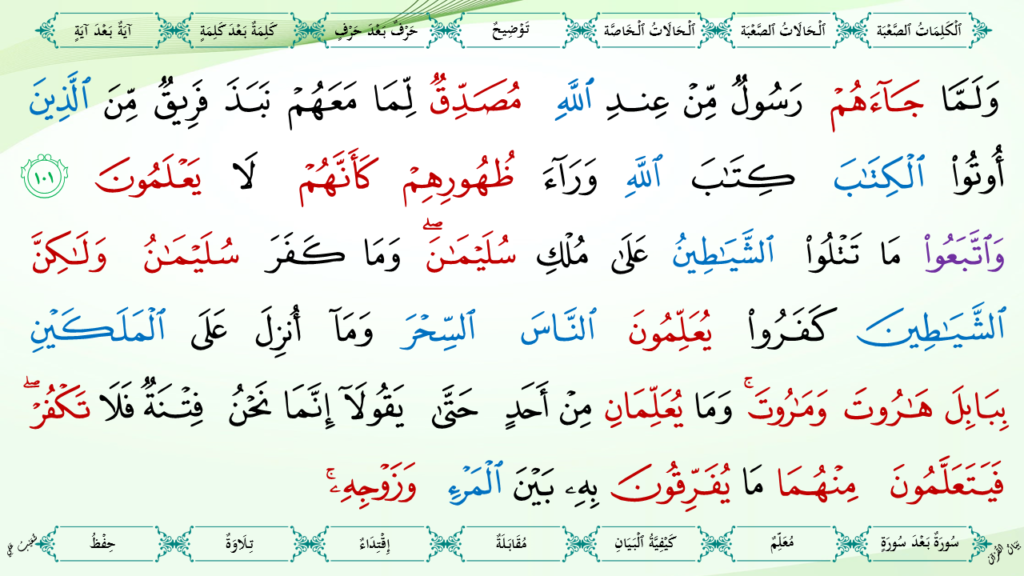 اَلْكَلِمَاتُ الصَّعْبَة اَلْحَالَاتُ الصَّعْبَة اَلْحَالَاتُ الْخَاصَّة تَوْضِيحٌ حَرْفٌ بَعْدَ حَرْفٍ كَلِمَةٌ بَعْدَ كَلِمَةٍ آيَةٌ بَعْدَ آيَةٍ
وَلَمَّا جَآءَهُمْ رَسُولٌ مِّنْ عِندِ ٱللَّهِ مُصَدِّقٌ لِّمَا مَعَهُمْ نَبَذَ فَرِيقٌ مِّنَ ٱلَّذِينَ
أُوتُوا۟ ٱلْكِتَـٰبَ كِتَـٰبَ ٱللَّهِ وَرَآءَ ظُهُورِهِمْ كَأَنَّهُمْ لَا يَعْلَمُونَ ١٠١
وَٱتَّبَعُوا۟ مَا تَتْلُوا۟ ٱلشَّيَـٰطِينُ عَلَىٰ مُلْكِ سُلَيْمَـٰنَ ۖ وَمَا كَفَرَ سُلَيْمَـٰنُ وَلَـٰكِنَّ
ٱلشَّيَـٰطِينَ كَفَرُوا۟ يُعَلِّمُونَ ٱلنَّاسَ ٱلسِّحْرَ وَمَآ أُنزِلَ عَلَى ٱلْمَلَكَيْنِ
بِبَابِلَ هَـٰرُوتَ وَمَـٰرُوتَ ۚ وَمَا يُعَلِّمَانِ مِنْ أَحَدٍ حَتَّىٰ يَقُولَآ إِنَّمَا نَحْنُ فِتْنَةٌ فَلَا تَكْفُرْ ۖ
فَيَتَعَلَّمُونَ مِنْهُمَا مَا يُفَرِّقُونَ بِهِۦ بَيْنَ ٱلْمَرْءِ وَزَوْجِهِۦ ۚ
سُورَةٌ بَعْدَ سُورَةٍ مُعَلِّمٌ كَيْفِيَّةُ الْبَيَانِ مُقَابَلَةٌ إِقْتِدَاءٌ تِلَاوَةٌ حِفْظٌ